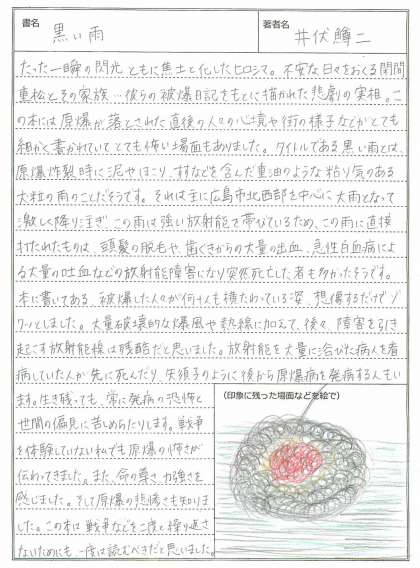 書名
黒い雨
著者名
井伏鱒二
たった一瞬の閃光とともに焦土と化したヒロシマ。不安な日々をおくる閑間
重松とその家族…彼らの被爆日記をもとに描かれた悲劇の実相。こ
の本には原爆が落とされた直後の人々の心境や街の様子などがとても
細かく書かれていてとても怖い場面もありました。タイトルである黒い雨とは、
原爆炸裂時に泥やほこり、すすなどを含んだ重油のような粘り気のある
大粒の雨のことだそうです。それは主に広島市北西部を中心に大雨となって
激しく降り注ぎ この雨は強い放射能を帯びているため、この雨に直接
打たれたものは 頭髪の脱毛や、歯ぐきからの大量の出血、急性白血病によ
る大量の吐血などの放射能障害になり突然死亡した者も多かったそうです。
本に書いてある、被爆した人々が何十人も横たわっている姿、想像するだけでゾ
ワッとしました。大量破壊的な爆風や熱線に加えて、後々、障害を引き
起こす放射能線は残酷だと思いました。放射能を大量に浴びた病人を看
病していた人が先に死んだり、矢須子のように後から原爆病を発病する人もい
ます。生き残っても、常に発病の恐怖と
世間の偏見に苦しめられたりします。戦争
を体験していない私でも原爆の怖さが
伝わってきました。また、命の尊さ、力強さを
感じました。そして原爆の悲惨さも知りま
した。この本は戦争などを二度と繰り返さ
ないためにも、一度は読むべきだと思いました。
(印象に残った場面などを絵で)